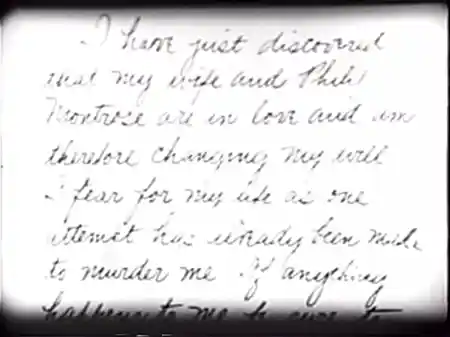 I have just discovered
that my wife and Philip
Montrose are in love and am
therefore changing my will
I fear for my life as one
attempt has already been made
to murder me If anything
happens to me be sure to